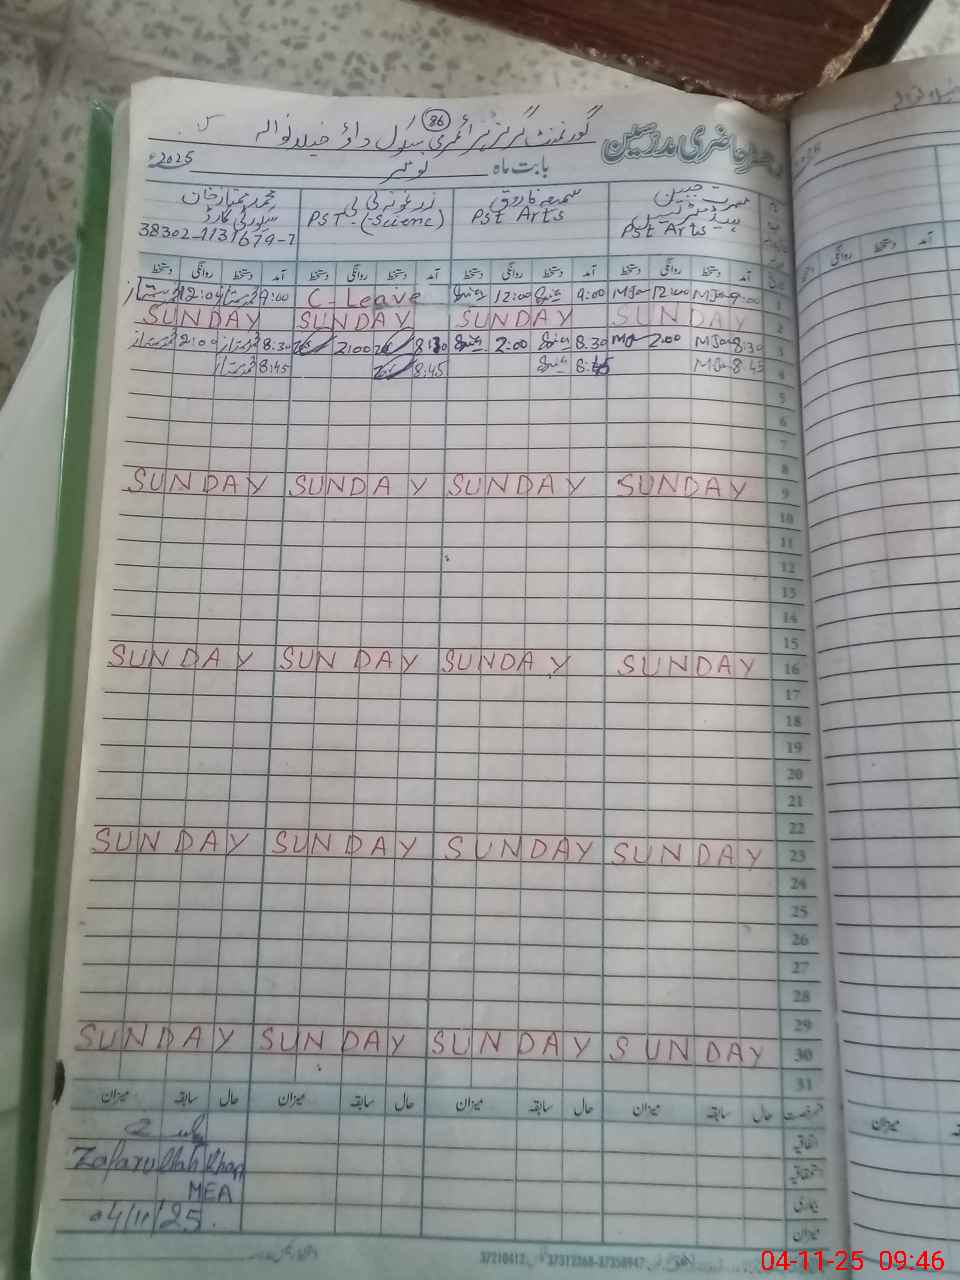 86
گورنمنٹ گرلز پرائمری سکول داؤ خیلانوالہ
حاضری مدرسین
بابت ماہ نومبر 2025ء
مسرت جبین
ہیڈ مسٹریس
Pst Arts
سمیعہ فاروق
Pst Arts
زرغونہ بی بی
PST (Scienc)
محمد ممتاز خان
سیکورٹی گارڈ
38302-1131679-7
آمد دستخط روانگی دستخط آمد دستخط روانگی دستخط آمد دستخط روانگی دستخط آمد دستخط روانگی دستخط
1 9:00 MJan 12:00 MJan 9:00 12:00 C-Leave 9:00 12:00
2 SUNDAY SUNDAY SUNDAY SUNDAY
3 8:30 MJan 2.00 8.30 2:00 8:30 2:00 8:30 2:00
4 8.45 MJan 8:45 8:45 8:45
5
6
7
8
9 SUNDAY SUNDAY SUNDAY SUNDAY
10
11
12
13
14
15
16 SUNDAY SUNDAY SUNDAY SUNDAY
17
18
19
20
21
22
23 SUNDAY SUNDAY SUNDAY SUNDAY
24
25
26
27
28
29
30 SUNDAY SUNDAY SUNDAY SUNDAY
31
قسم رخصت حال سابقہ میزان حال سابقہ میزان حال سابقہ میزان حال سابقہ میزان
اتفاقیہ
استحقاقیہ
بیماری
میزان
Zafarullah Khan
MEA
04/11/25
37210412 37312268-37358947
04-11-25 09:46
آمد دستخط روانگی
میزان